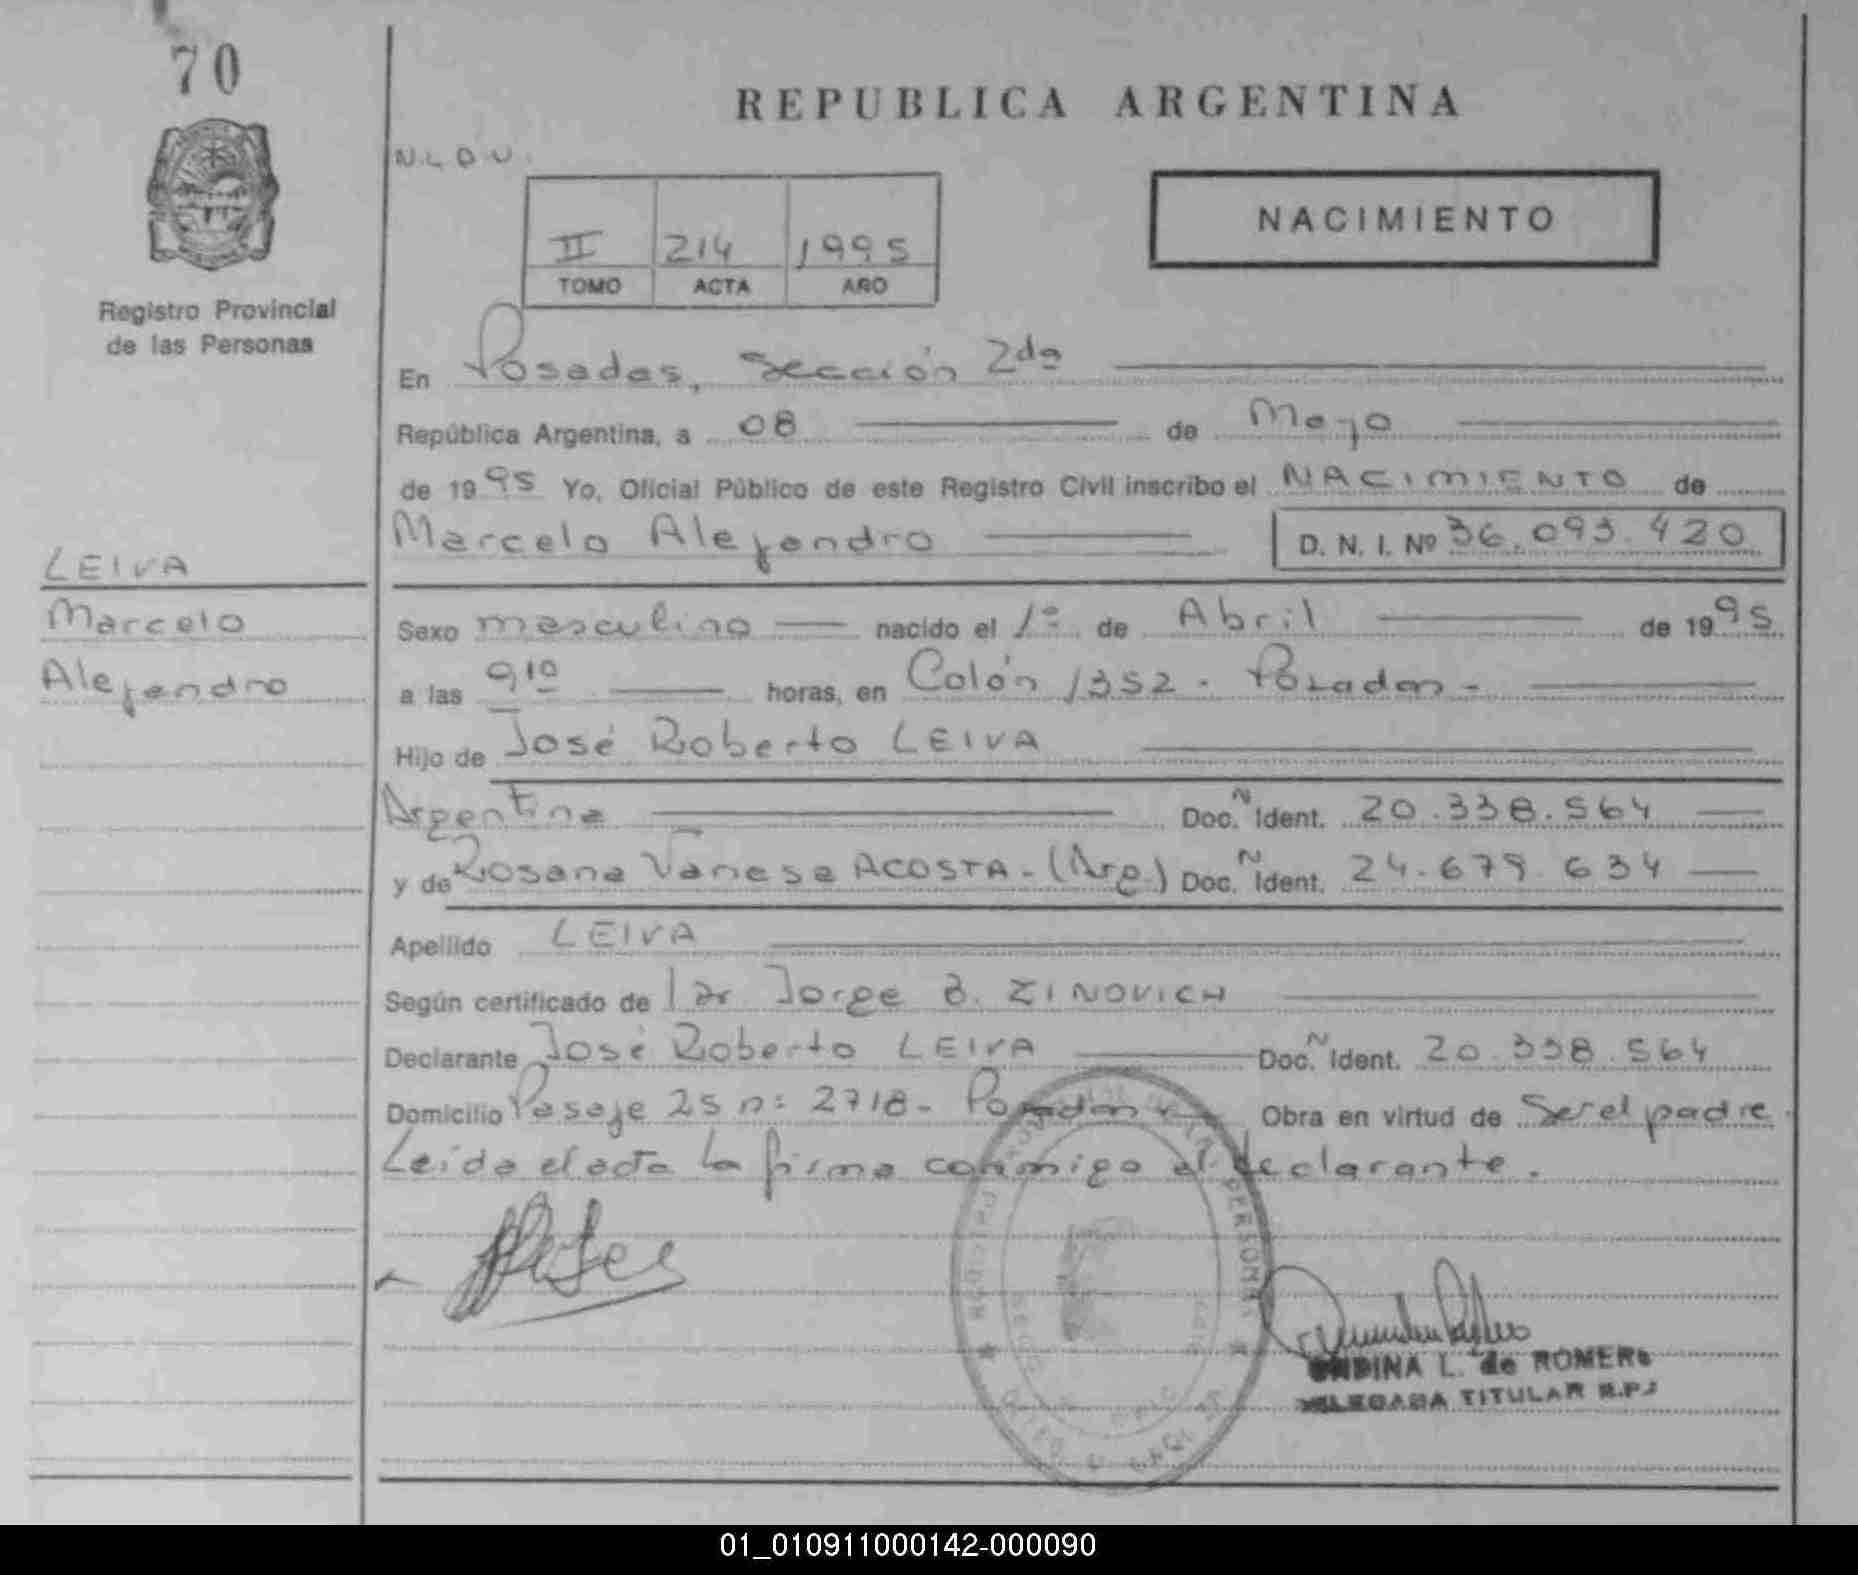 70
REPUBLICA ARGENTINA
N.L.D.U.
NACIMIENTO
II 214 1995
TOMO ACTA AÑO
Registro Provincial
de las Personas
En Posadas, Sección 2da
República Argentina, a 08 de Mayo
de 1995 Yo, Oficial Público de este Registro Civil inscribo el NACIMIENTO de
Marcelo Alejandro D. N. I. Nº 36.093.420
LEIVA
Marcelo
Alejandro
Sexo masculino nacido el 1º de Abril de 1995
a las 9,10 horas, en Colón 1352 - Posadas -
Hijo de José Roberto LEIVA
Argentina Doc. N Ident. 20.338.564
y de Rosana Vanesa ACOSTA - (Arg) Doc. N Ident. 24.679.634
Apellido LEIVA
Según certificado de Dr. Jorge B. ZINOVICH
Declarante José Roberto LEIVA Doc. N Ident. 20.338.564
Domicilio Pasaje 25 nº 2718 - Posadas - Obra en virtud de Ser el padre.
Leida el acta la firma conmigo el declarante.
ONDINA L. de ROMERO
DELEGADA TITULAR R.P.
01_010911000142-000090